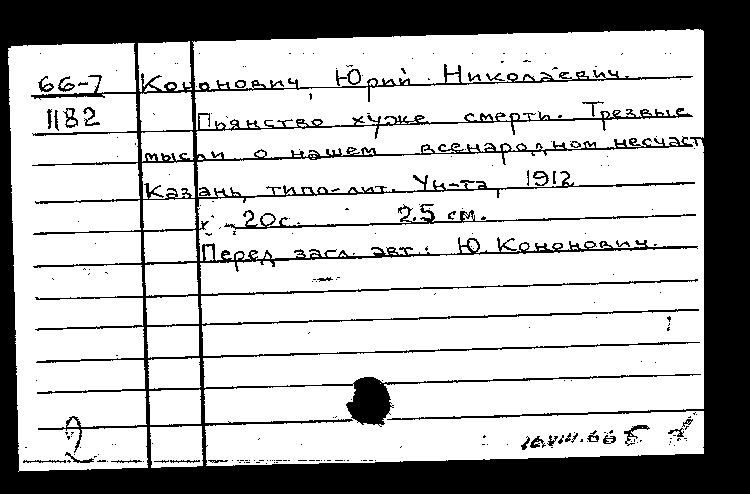 66-7 Кононович, Юрий Николаевич.
1182 Пьянство хуже смерти. Трезвые
мысли о нашем всенародном несчаст
Казань, типо-лит. Ун-та, 1912
20с. 25 см.
Перед загл. авт.: Ю. Кононович.
2 16.VIII.66